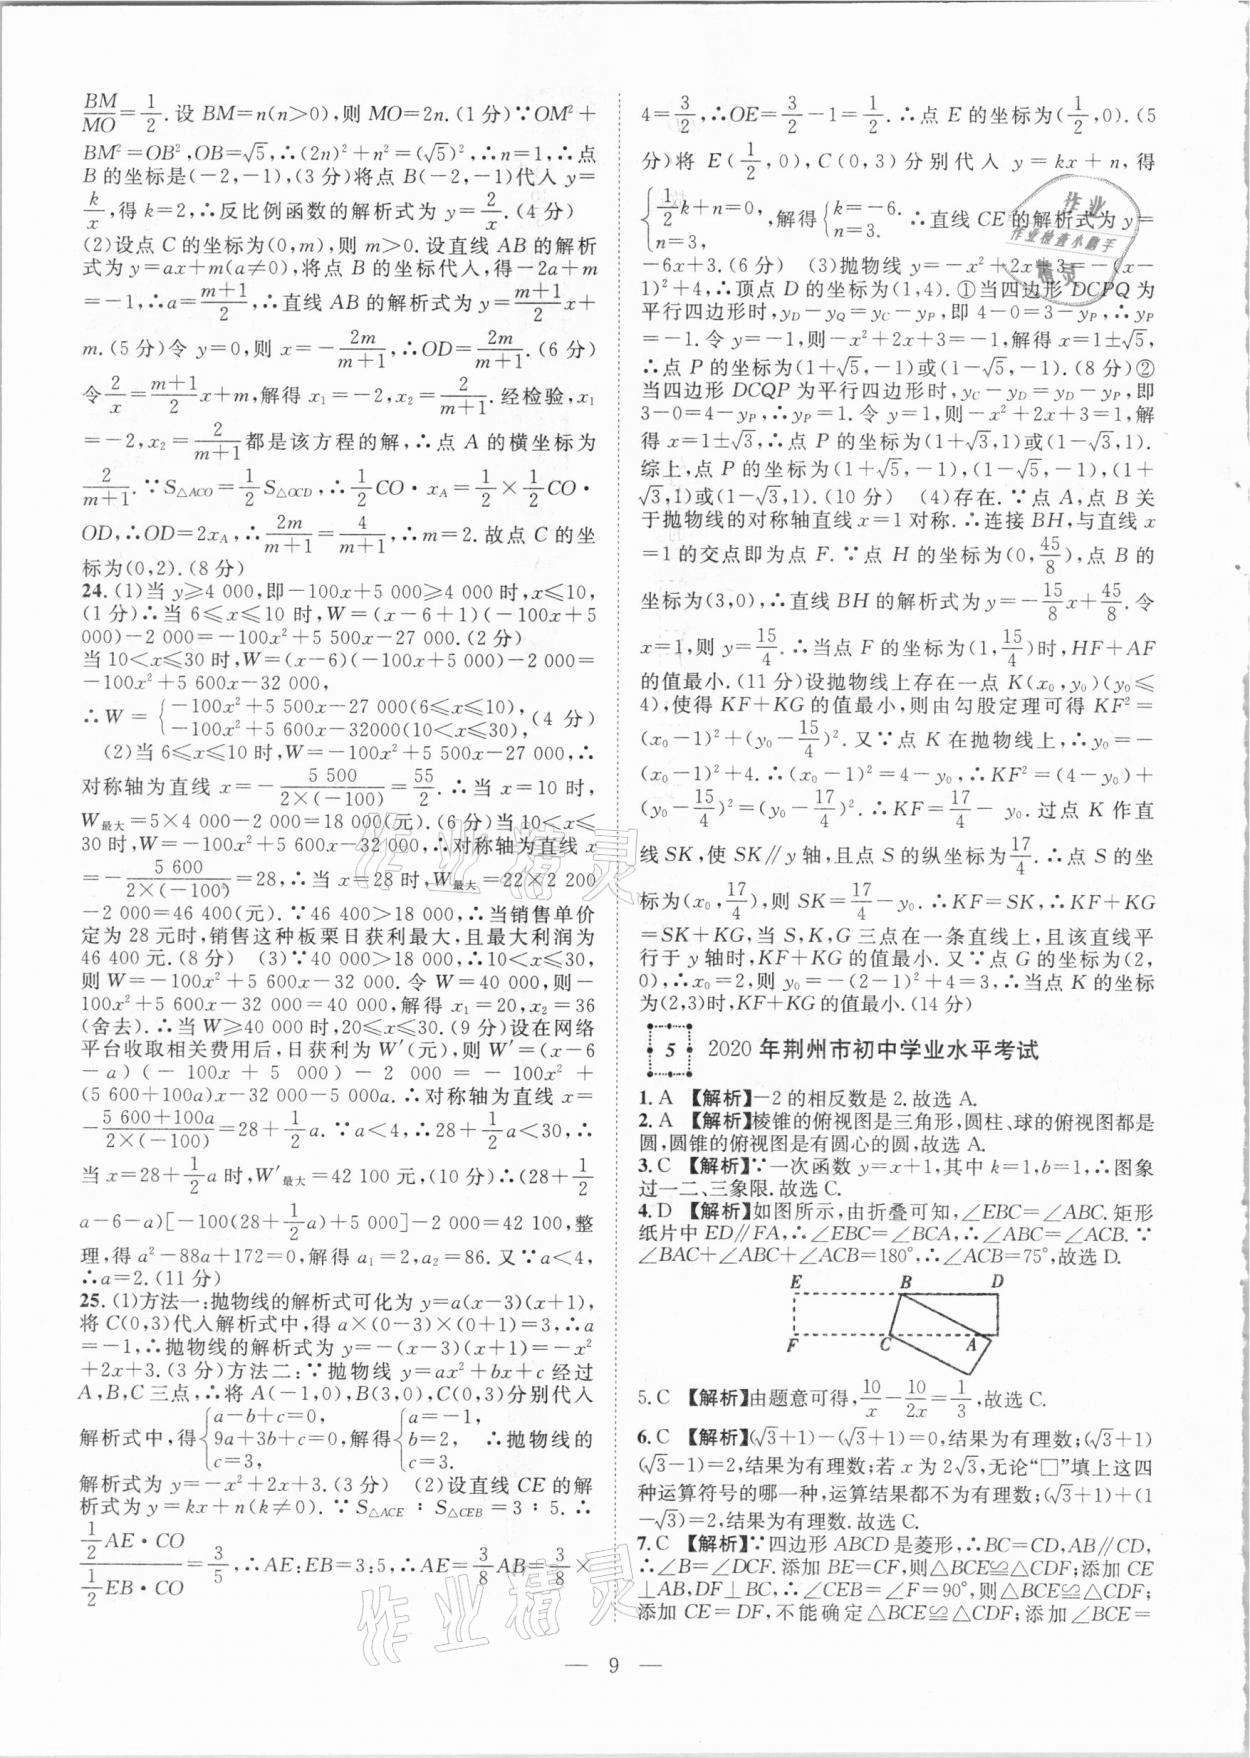 BM/MO=1/2.设 BM=n(n>0),则 MO=2n.(1 分)∵OM²+
BM²=OB²,OB=√5,∴(2n)²+n²=(√5)²,∴n=1,∴点
B 的坐标是(-2,-1),(3 分)将点 B(-2,-1)代入 y=
k/x,得 k=2,∴反比例函数的解析式为 y=2/x.(4 分)
(2)设点 C 的坐标为(0,m),则 m>0.设直线 AB 的解析
式为 y=ax+m(a≠0),将点 B 的坐标代入,得-2a+m
=-1,∴a=(m+1)/2,∴直线 AB 的解析式为 y=(m+1)/2 x+
m.(5 分)令 y=0,则 x=-2m/(m+1),∴OD=2m/(m+1).(6 分)
令2/x=(m+1)/2 x+m,解得 x₁=-2,x₂=2/(m+1).经检验,x₁
=-2,x₂=2/(m+1)都是该方程的解,∴点 A 的横坐标为
2/(m+1).∵S△ACO=1/2 S△OCD,∴1/2 CO·x_A=1/2×1/2 CO·
OD,∴OD=2x_A,∴2m/(m+1)=4/(m+1),∴m=2.故点 C 的坐
标为(0,2).(8 分)
24.(1)当 y≥4 000,即-100x+5 000≥4 000 时,x≤10,
(1 分)∴当 6≤x≤10 时,W=(x-6+1)(-100x+5
000)-2 000=-100x²+5 500x-27 000.(2 分)
当 10<x≤30 时,W=(x-6)(-100x+5 000)-2 000=
-100x²+5 600x-32 000,
∴W={-100x²+5 500x-27 000(6≤x≤10),
-100x²+5 600x-32000(10<x≤30),(4 分)
(2)当 6≤x≤10 时,W=-100x²+5 500x-27 000,∴
对称轴为直线 x=-5 500/(2×(-100))=55/2.∴当 x=10 时,
W最大=5×4 000-2 000=18 000(元).(6 分)当 10<x≤
30 时,W=-100x²+5 600x-32 000,∴对称轴为直线 x
=-5 600/(2×(-100))=28,∴当 x=28 时,W最大=22×2 200
-2 000=46 400(元).∵46 400>18 000,∴当销售单价
定为 28 元时,销售这种板栗日获利最大,且最大利润为
46 400 元.(8 分) (3)∵40 000>18 000,∴10<x≤30,
则 W=-100x²+5 600x-32 000.令 W=40 000,则-
100x²+5 600x-32 000=40 000,解得 x₁=20,x₂=36
(舍去).∴当 W≥40 000 时,20≤x≤30.(9 分)设在网络
平台收取相关费用后,日获利为 W′(元),则 W′=(x-6
-a)(-100x+5 000)-2 000=-100x²+
(5 600+100a)x-32 000-5 000a.∴对称轴为直线 x=
-(5 600+100a)/(2×(-100))=28+1/2 a.∵a<4,∴28+1/2 a<30,∴
当 x=28+1/2 a 时,W′最大=42 100 元,(10 分)∴(28+1/2
a-6-a)[-100(28+1/2 a)+5 000]-2 000=42 100,整
理,得 a²-88a+172=0,解得 a₁=2,a₂=86.又∵a<4,
∴a=2.(11 分)
25.(1)方法一:抛物线的解析式可化为 y=a(x-3)(x+1),
将 C(0,3)代入解析式中,得 a×(0-3)×(0+1)=3,∴a
=-1,∴抛物线的解析式为 y=-(x-3)(x+1)=-x²+
2x+3.(3 分)方法二:∵抛物线 y=ax²+bx+c 经过
A,B,C 三点,∴将 A(-1,0),B(3,0),C(0,3)分别代入
解析式中,得{a-b+c=0, 9a+3b+c=0, c=3,解得{a=-1, b=2, c=3. ∴抛物线的
解析式为 y=-x²+2x+3.(3 分) (2)设直线 CE 的解
析式为 y=kx+n(k≠0).∵S△ACE∶S△CEB=3∶5.∴
(1/2 AE·CO)/(1/2 EB·CO)=3/5,∴AE:EB=3:5,∴AE=3/8 AB=3/8×
4=3/2,∴OE=3/2-1=1/2.∴点 E 的坐标为(1/2,0).(5
分)将 E(1/2,0),C(0,3)分别代入 y=kx+n,得
{1/2 k+n=0, n=3,解得{k=-6, n=3. ∴直线 CE 的解析式为 y=
-6x+3.(6 分) (3)抛物线 y=-x²+2x+3=-(x-
1)²+4,∴顶点 D 的坐标为(1,4).①当四边形 DCPQ 为
平行四边形时,y_D-y_Q=y_C-y_P,即 4-0=3-y_P,∴y_P
=-1.令 y=-1,则-x²+2x+3=-1,解得 x=1±√5,
∴点 P 的坐标为(1+√5,-1)或(1-√5,-1).(8 分)②
当四边形 DCQP 为平行四边形时,y_C-y_D=y_D-y_P,即
3-0=4-y_P,∴y_P=1.令 y=1,则-x²+2x+3=1,解
得 x=1±√3,∴点 P 的坐标为(1+√3,1)或(1-√3,1).
综上,点 P 的坐标为(1+√5,-1),(1-√5,-1),(1+
√3,1)或(1-√3,1).(10 分) (4)存在.∵点 A,点 B 关
于抛物线的对称轴直线 x=1 对称.∴连接 BH,与直线 x
=1 的交点即为点 F.∵点 H 的坐标为(0,45/8),点 B 的
坐标为(3,0),∴直线 BH 的解析式为 y=-15/8 x+45/8.令
x=1,则 y=15/4.∴当点 F 的坐标为(1,15/4)时,HF+AF
的值最小.(11 分)设抛物线上存在一点 K(x₀,y₀)(y₀≤
4),使得 KF+KG 的值最小,则由勾股定理可得 KF²=
(x₀-1)²+(y₀-15/4)².又∵点 K 在抛物线上,∴y₀=-
(x₀-1)²+4.∴(x₀-1)²=4-y₀,∴KF²=(4-y₀)+
(y₀-15/4)²=(y₀-17/4)².∴KF=17/4-y₀.过点 K 作直
线 SK,使 SK∥y 轴,且点 S 的纵坐标为17/4.∴点 S 的坐
标为(x₀,17/4),则 SK=17/4-y₀.∴KF=SK,∴KF+KG
=SK+KG,当 S,K,G 三点在一条直线上,且该直线平
行于 y 轴时,KF+KG 的值最小.又∵点 G 的坐标为(2,
0),∴x₀=2,则 y₀=-(2-1)²+4=3,∴当点 K 的坐标
为(2,3)时,KF+KG 的值最小.(14 分)
5 2020 年荆州市初中学业水平考试
1.A 【解析】-2 的相反数是 2.故选 A.
2.A 【解析】棱锥的俯视图是三角形,圆柱、球的俯视图都是
圆,圆锥的俯视图是有圆心的圆,故选 A.
3.C 【解析】∵一次函数 y=x+1,其中 k=1,b=1,∴图象
过一二、三象限.故选 C.
4.D 【解析】如图所示,由折叠可知,∠EBC=∠ABC.矩形
纸片中 ED∥FA,∴∠EBC=∠BCA,∴∠ABC=∠ACB.∵
∠BAC+∠ABC+∠ACB=180°,∴∠ACB=75°,故选 D.
E B D
F C A
5.C 【解析】由题意可得,10/x-10/2x=1/3,故选 C.
6.C 【解析】(√3+1)-(√3+1)=0,结果为有理数;(√3+1)
(√3-1)=2,结果为有理数;若 x 为 2√3,无论“□”填上这四
种运算符号的哪一种,运算结果都不为有理数;(√3+1)+(1
-√3)=2,结果为有理数.故选 C.
7.C 【解析】∵四边形 ABCD 是菱形,∴BC=CD,AB∥CD,
∴∠B=∠DCF.添加 BE=CF,则△BCE≌△CDF;添加 CE
⊥AB,DF⊥BC,∴∠CEB=∠F=90°,则△BCE≌△CDF;
添加 CE=DF,不能确定△BCE≌△CDF;添加∠BCE=
— 9 —
作业
作业检查小助手
精灵
作业精灵
作业精灵